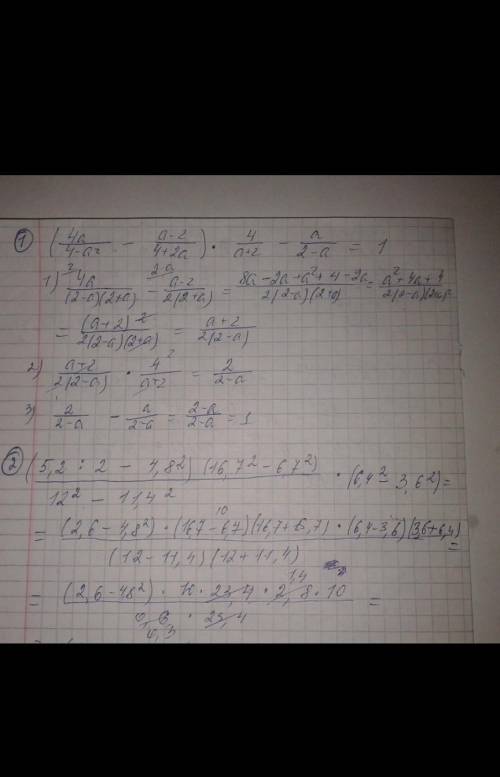 ① (4a/(4-a²) - (a-2)/(4+2a)) · 4/(a+2) - a/(2-a) = 1
1) 4a/((2-a)(2+a)) - (a-2)/(2(2+a)) = (8a-2a+a²+4-2a)/(2(2-a)(2+a)) = (a²+4a+4)/(2(2-a)(2+a)) =
= (a+2)²/(2(2-a)(2+a)) = (a+2)/(2(2-a))
2) (a+2)/(2(2-a)) · 4/(a+2) = 2/(2-a)
3) 2/(2-a) - a/(2-a) = (2-a)/(2-a) = 1
② (5,2 : 2 - 4,8²)(16,7² - 6,7²)/(12² - 11,4²) · (6,4² - 3,6²) =
= (2,6-4,8²)·(16,7-6,7)(16,7+6,7)·(6,4-3,6)(3,6+6,4)/((12-11,4)(12+11,4)) =
= (2,6-4,8²) · 10 · 23,4 · 2,8 · 10/(0,6 · 23,4) =